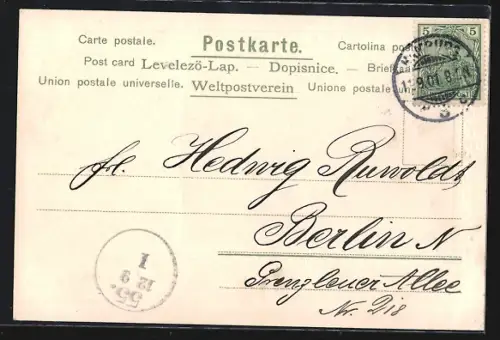 Carte postale. Postkarte. Cartolina postale
Post card Levelező-Lap. — Dopisnice. — Briefkaart
Union postale universelle. Weltpostverein Unione postale
5 5
HAMBURG
9.01.
fr. Hedwig Ruwoldt
Berlin N
Prenzlauer Allee
Nr. 218
55.
12 9
1